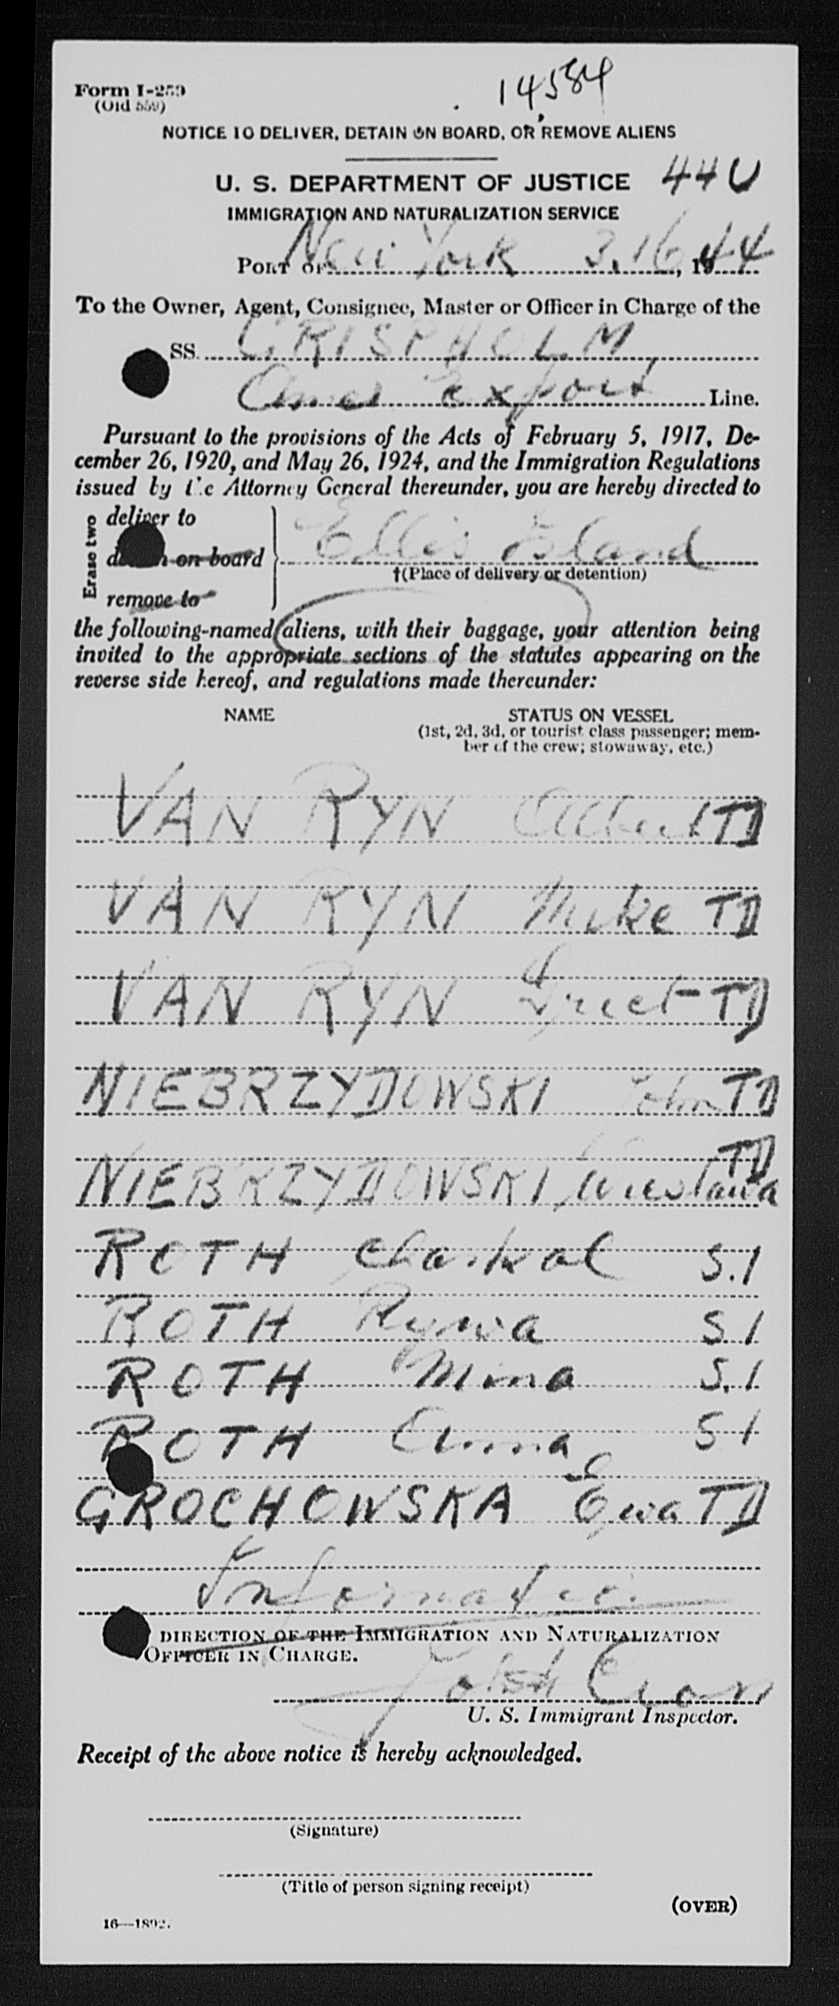 Form I-259
(Old 559)
14584
NOTICE TO DELIVER, DETAIN ON BOARD, OR REMOVE ALIENS
U. S. DEPARTMENT OF JUSTICE 44U
IMMIGRATION AND NATURALIZATION SERVICE
PORT OF New York 3.16, 1944
To the Owner, Agent, Consignee, Master or Officer in Charge of the
SS. GRISPHOLM,
Amer Export Line.
Pursuant to the provisions of the Acts of February 5, 1917, De-
cember 26, 1920, and May 26, 1924, and the Immigration Regulations
issued by the Attorney General thereunder, you are hereby directed to
Erase two
deliver to
detain on board
remove to
Ellis Island
†(Place of delivery or detention)
the following-named aliens, with their baggage, your attention being
invited to the appropriate sections of the statutes appearing on the
reverse side hereof, and regulations made thereunder:
NAME STATUS ON VESSEL
(1st, 2d, 3d, or tourist class passenger; mem-
ber of the crew; stowaway, etc.)
VAN RYN Albert TD
VAN RYN Mike TD
VAN RYN Griet TD
NIEBRZYDOWSKI John TD
NIEBRZYDOWSKI Wieslawa TD
ROTH Chaskal S.I
ROTH Rywa S.I
ROTH Mina S.I
ROTH Anna S I
GROCHOWSKA Ewa TD
DIRECTION OF THE IMMIGRATION AND NATURALIZATION
OFFICER IN CHARGE.
U. S. Immigrant Inspector.
Receipt of the above notice is hereby acknowledged.
(Signature)
(Title of person signing receipt)
(OVER)
16—1892.